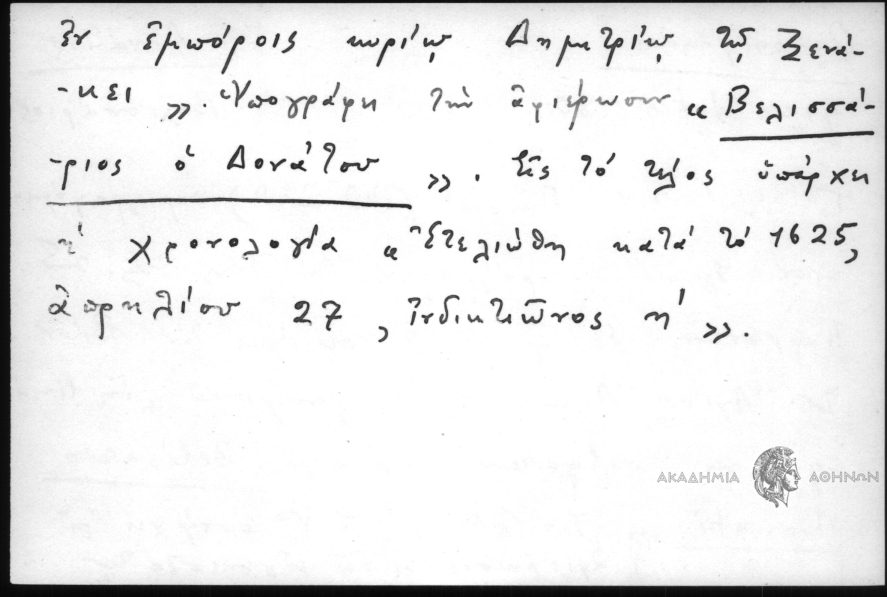 ἐν ἐμπόροις κυρίῳ Δημητρίῳ τῷ Ξενά-
-κει ». Ὑπογράφει τὴν ἀφιέρωσιν « Βελισσά-
-ριος ὁ Δονάτου ». Εἰς τό τέλος ὑπάρχει
ἡ χρονολογία « Ἐτελιώθη κατά τό 1625,
ἀπρηλίου 27, ἰνδικτιῶνος η' ».
ΑΚΑΔΗΜΙΑ ΑΘΗΝΩΝ